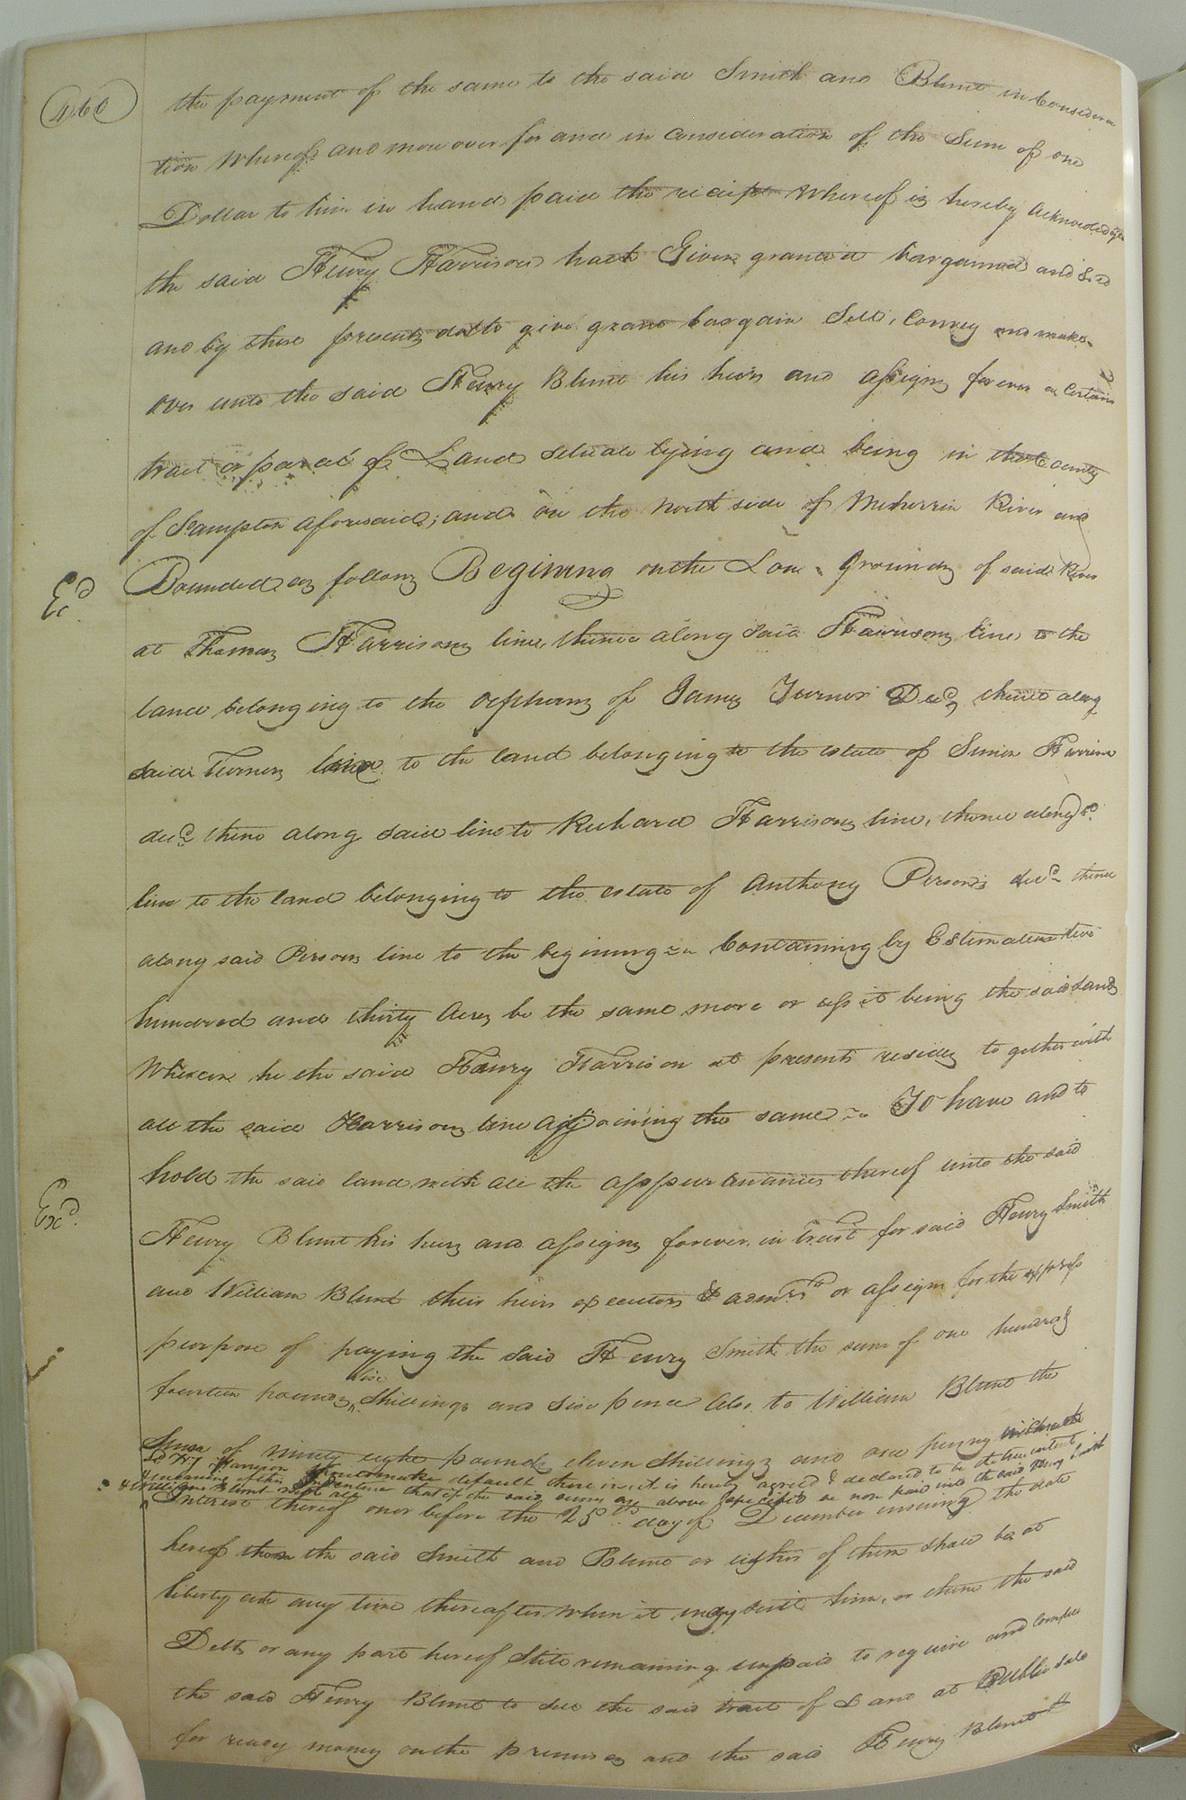 460
the payment of the same to the said Smith and Blunt in Considera
tion Whereof and more over for and in Consideration of the Sum of one
Dollar to him in hand paid the reciept Whereof is hereby Acknowledged
the said Henry Harrison hath Given granted bargained and Sold
and by these presents doth give grant bargain Sell, Convey and make
over unto the said Henry Blunt his heirs and assigns forever a Certain
tract or parcel of Land Situate lying and being in the County
of Hampton aforesaid; and on the North side of Meherrin River and
Ex.d
Bounded as follows Begining on the Low Grounds of said River
at Thomas Harrisons line, thence along said Harrisons line to the
land belonging to the orphans of James Turner Decd, thence along
said Turners line to the land belonging to the estate of Simon Harris
decd thence along said line to Richard Harrisons line, thence along sd.
line to the land belonging to the estate of Anthony Persons decd thence
along said Persons line to the begining Containing by Estimation two
hundred and thirty Acres be the same more or less it being the said Land
Whereon he the said Henry Harrison at present resides together with
all the said Harrisons line Adjoining the same To have and to
hold the said land with all the appurtenances thereof unto the said
Exd.
Henry Blunt his heirs and assigns forever in Trust for said Henry Smith
and William Blunt their heirs executors & admrs or assigns for the express
purpose of paying the Said Henry Smith the sum of one hundred
fourteen pounds five Shillings and Six pence Also to William Blunt the
Sum of ninety eight pounds eleven Shillings and one penny with the
Sd Hy Harrison should make default therein it is hereby agreed & declared to be the true intent
& meaning of this Indenture that if the said sums are above specified be not paid unto the said Henry Smith
& William Blunt with all
Interest thereof on or before the 25th day of December ensuing the date
hereof then the said Smith and Blunt or eigther of them shall be at
liberty at any time thereafter When it may suit him, or them the said
Debts or any part hereof Still remaining unpaid to require and Compell
the said Henry Blunt to Sell the said tract of Land at Public Sale
for ready money on the premises and the said Henry Blunt